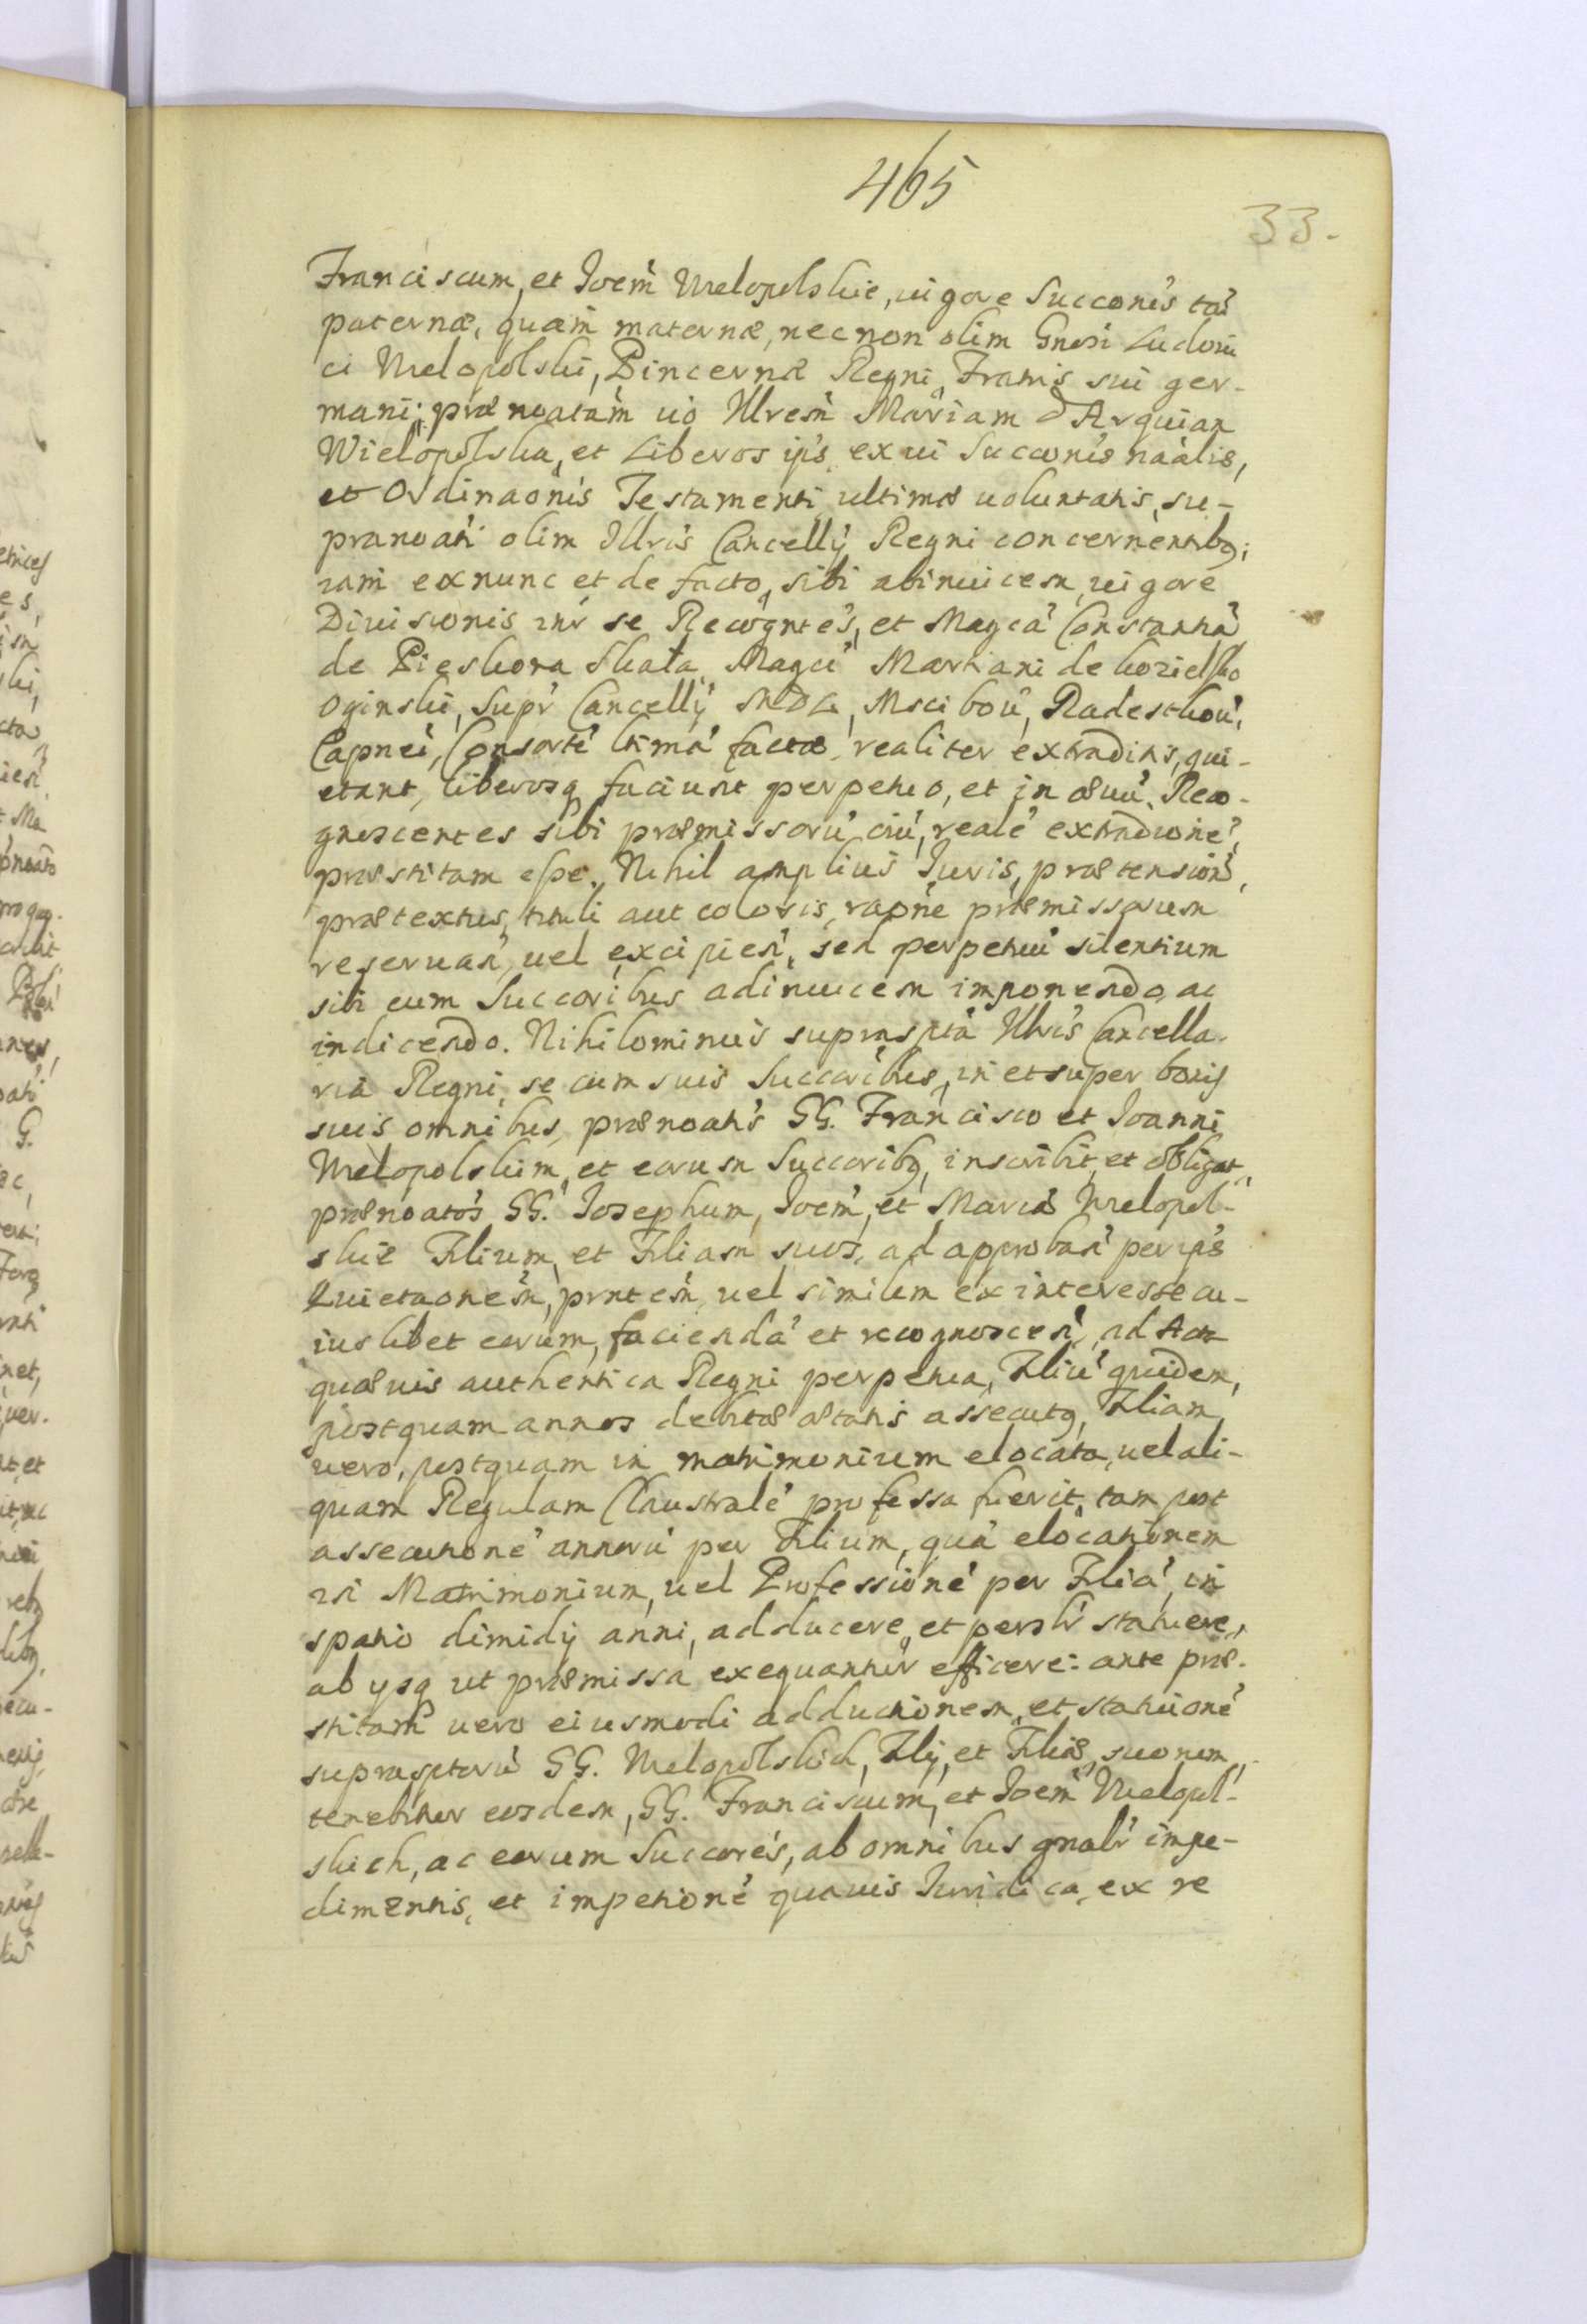 465
33.
Franciscum, et Joem̀ Wielopolskie, uigore Succonis tã
paternæ, quam̀ maternæ, nec non olim Gnosi Ludoui
ci Wielopolski, Pincernæ Regni, Fratris sui ger-
mani; prænoatam̀ uo Illresm̀ Mariam d'Arquian
Wielopolska, et Liberos ips̀, ex ui Succonis naàlis,
et Ordinaonis Testamenti ultimæ uoluntatis, su-
pranoati olim Illris Cancellÿ Regni concernentibꝫ;
iam̀ ex nunc et de facto, sibi abinuicem, uigore
Diuisionis inr̀ se Recogntes̀, et Magcã Constantiã
de Pieskora Skała, Magci Martiani de Kozielsko
Oginski, Supr̀ Cancellÿ MDL, Mscibou, Radeszkou,
Capnei, Consortẽ ltimã factæ, realiter extraditis, qui-
etant, liberosqꝫ faciunt perpetuo, et in æuũ. Reco-
gnoscentes sibi præmissorũ oiũ, realẽ extradionẽ,
præstitam esse. Nihil amplius Iuris, prætensioni,
prætextus, tituli aut coloris, raone præmissorum
reseruan, uel excipien, sed perpetuũ silentium
sibi cum Succoribus adinuicem imponendo, ac
indicendo. Nihilominus suprasptà Illris Cancella-
ria Regni, se cum suis Succoribus, in et super bonis
suis omnibus, prænoatis GG. Francisco et Ioanni
Wielopolskim, et eorum Succoribꝫ, inscribit, et obligat,
prænoatos GG. Iosephum, Joem̀, et Mariã Wielopol-
skie Filium, et Filiam suos, ad approban per ips̀
Quietaonem̀, prntem̀, uel similem ex interesse cu-
iuslibet eorum, faciendã et recognoscen, ad Acta
quæuis authentica Regni perpetua, Filiũ quidem,
postquam annos debitæ ætatis assecutꝫ, Filiam
uero, postquam in matrimonium elocata, uel ali-
quam Regulam Claustralẽ professa fuerit, tam post
assecutionẽ annorũ per Filium, quã elocationem
in Matrimonium, uel Professionẽ per Filiã, in
spatio dimidÿ anni, adducere, et persolr̀ statuere,
ab ysqꝫ ut præmissa exequantur efficere: ante præ-
stitam̀ uero eiusmodi adductionem, et statuionẽ
suprasptorũ GG. Wielopolskich, Filÿ, et Filiæ, suorum,
tenebitur eosdem, GG. Franciscum, et Joem̀ Wielopol-
skich, ac eorum Succores, ab omnibus gnalr̀ impe-
dimentis, et impetionẽ quauis Iuridica, ex re